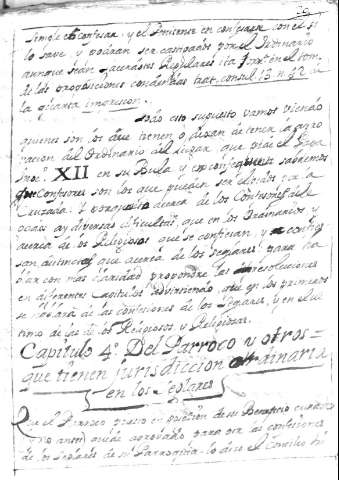 simple confesar. y el Penitente en confesarse con el si
lo save, y podran ser castigados por el Ordinario
aunque sean Sacerdotes Regulares
de las proposiciones condenadas trat. consul. 15. n. 92
la quarta impresion.
todo esto supuesto vamos viendo
quienes son los que tienen o dejan de tener la apro
vacion del Ordinario del lugar que pide el Papa
Inoc. XII en su Bula y sabremos
Confesores son los que pueden ser elejidos por la
Cruzada. Y porque acerca de los Confesores del
ay diversas dificultades, que en los Ordinarios, y
acerca de los Religiosos que se confiesan, y
son distintas que acerca de los Seglares para ha
blar con mas claridad propondre las resoluciones
en diferentes Capitulos advirtiendo que en los primeros
se hablará de las confesiones de los Seglares, y en el ul
timo de las de los Religiosos, y Religiosas.
Capitulo 4º Del Parroco y otros
que tienen jurisdiccion ordinaria
en los Seglares
Que el Parroco puesto en posesion de su Beneficio curado
y no antes) quede aprovado para oir las confesiones
de los Seglares de su Parroquia lo dice el Concilio Tri